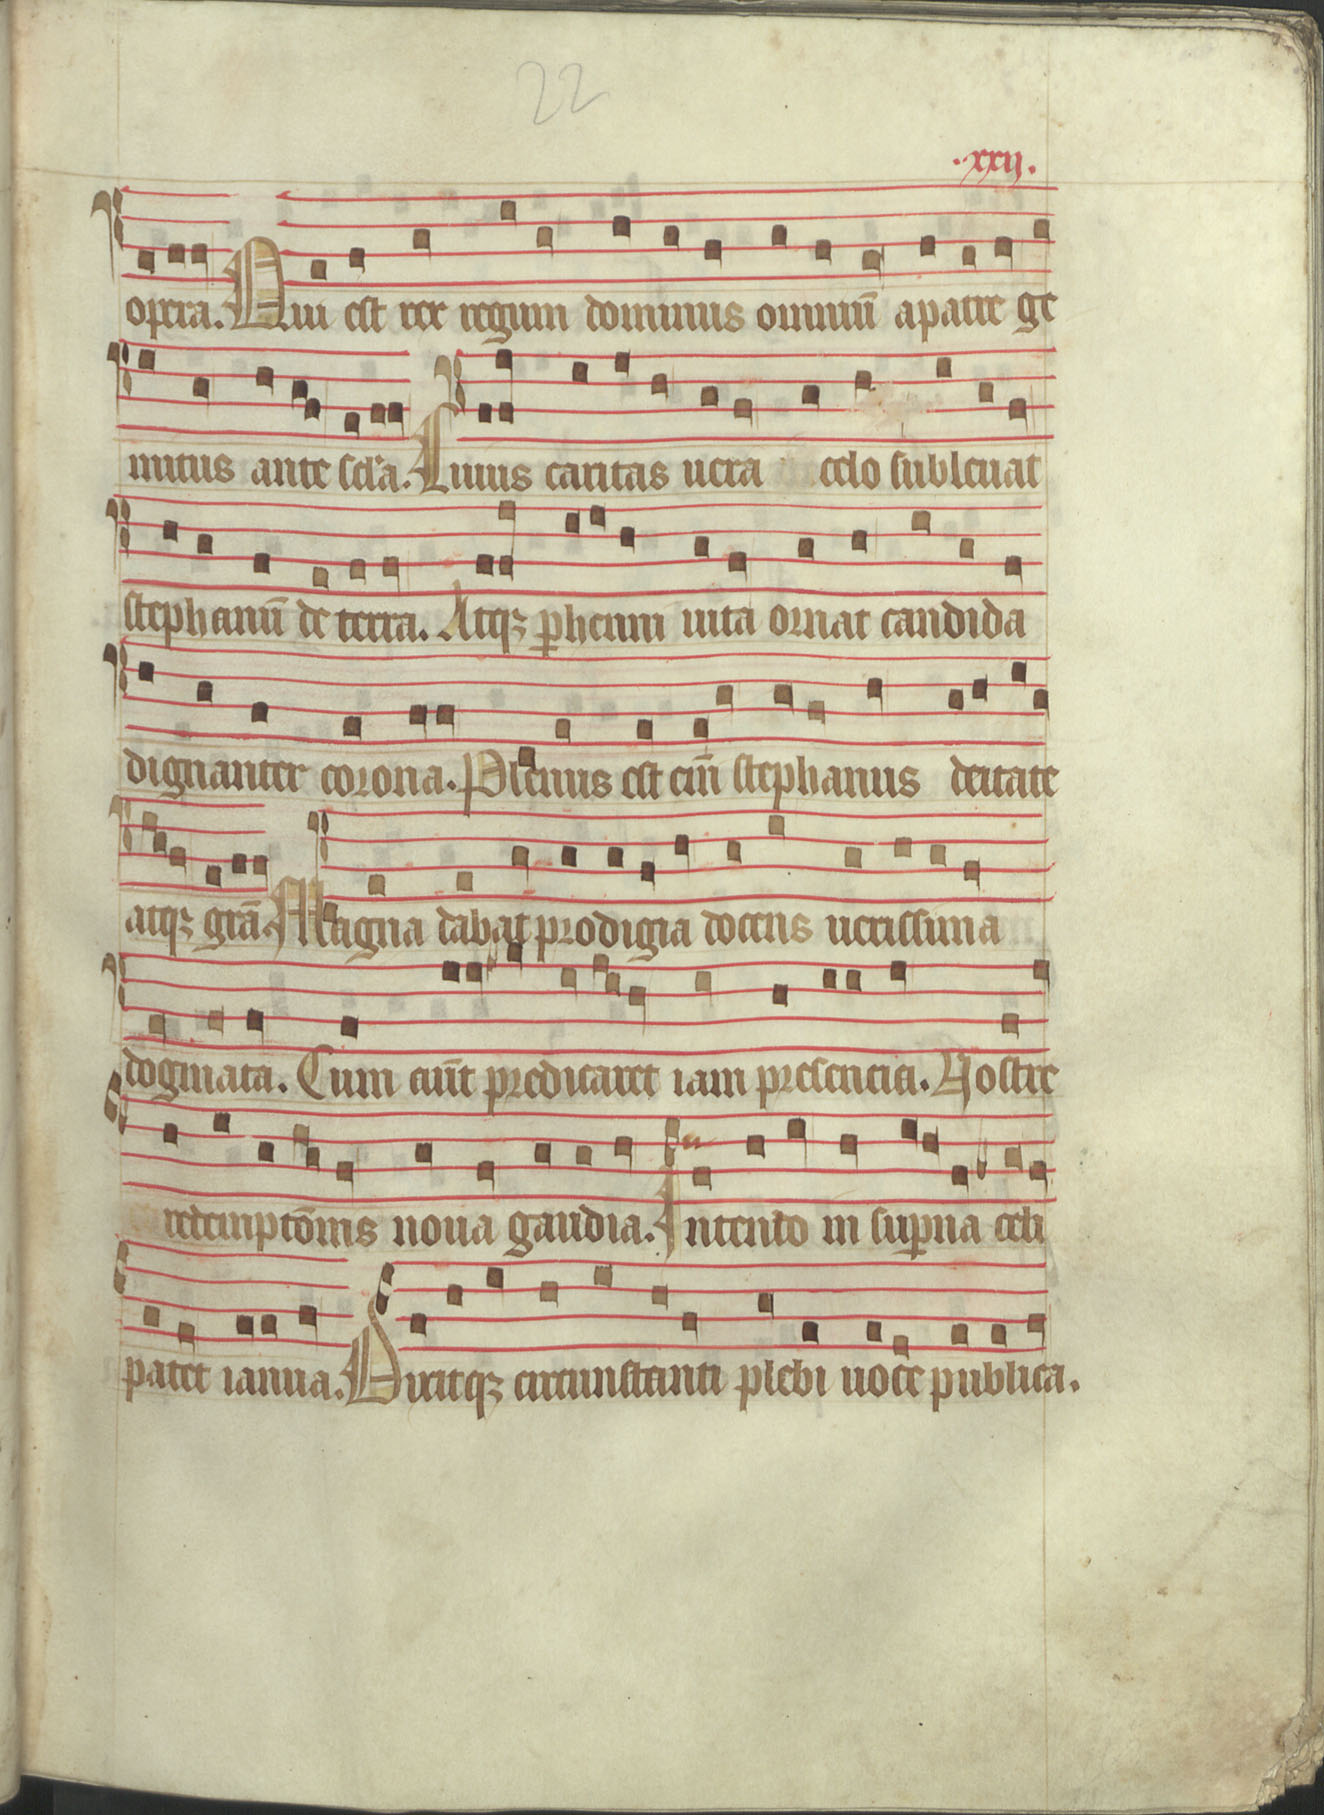 22
·xxij·
opera. Qui est rex regum dominus omniū a patre ge
nitus ante scl'a. Cuius caritas uera celo subleuat
stephanū de terra. Atqꝫ ꝑhenni uita ornat candida
dignanter corona. Plenus est eni̅ stephanus deitate
atqꝫ grā. Magna dabat prodigia docens uerissima
dogmata. Cum predicaret iam presencia. Nostre
redemptōnis noua gaudia. Intendo in suꝑna celi
patet ianua. Dixitqꝫ circumstanti plebi uoce publica.